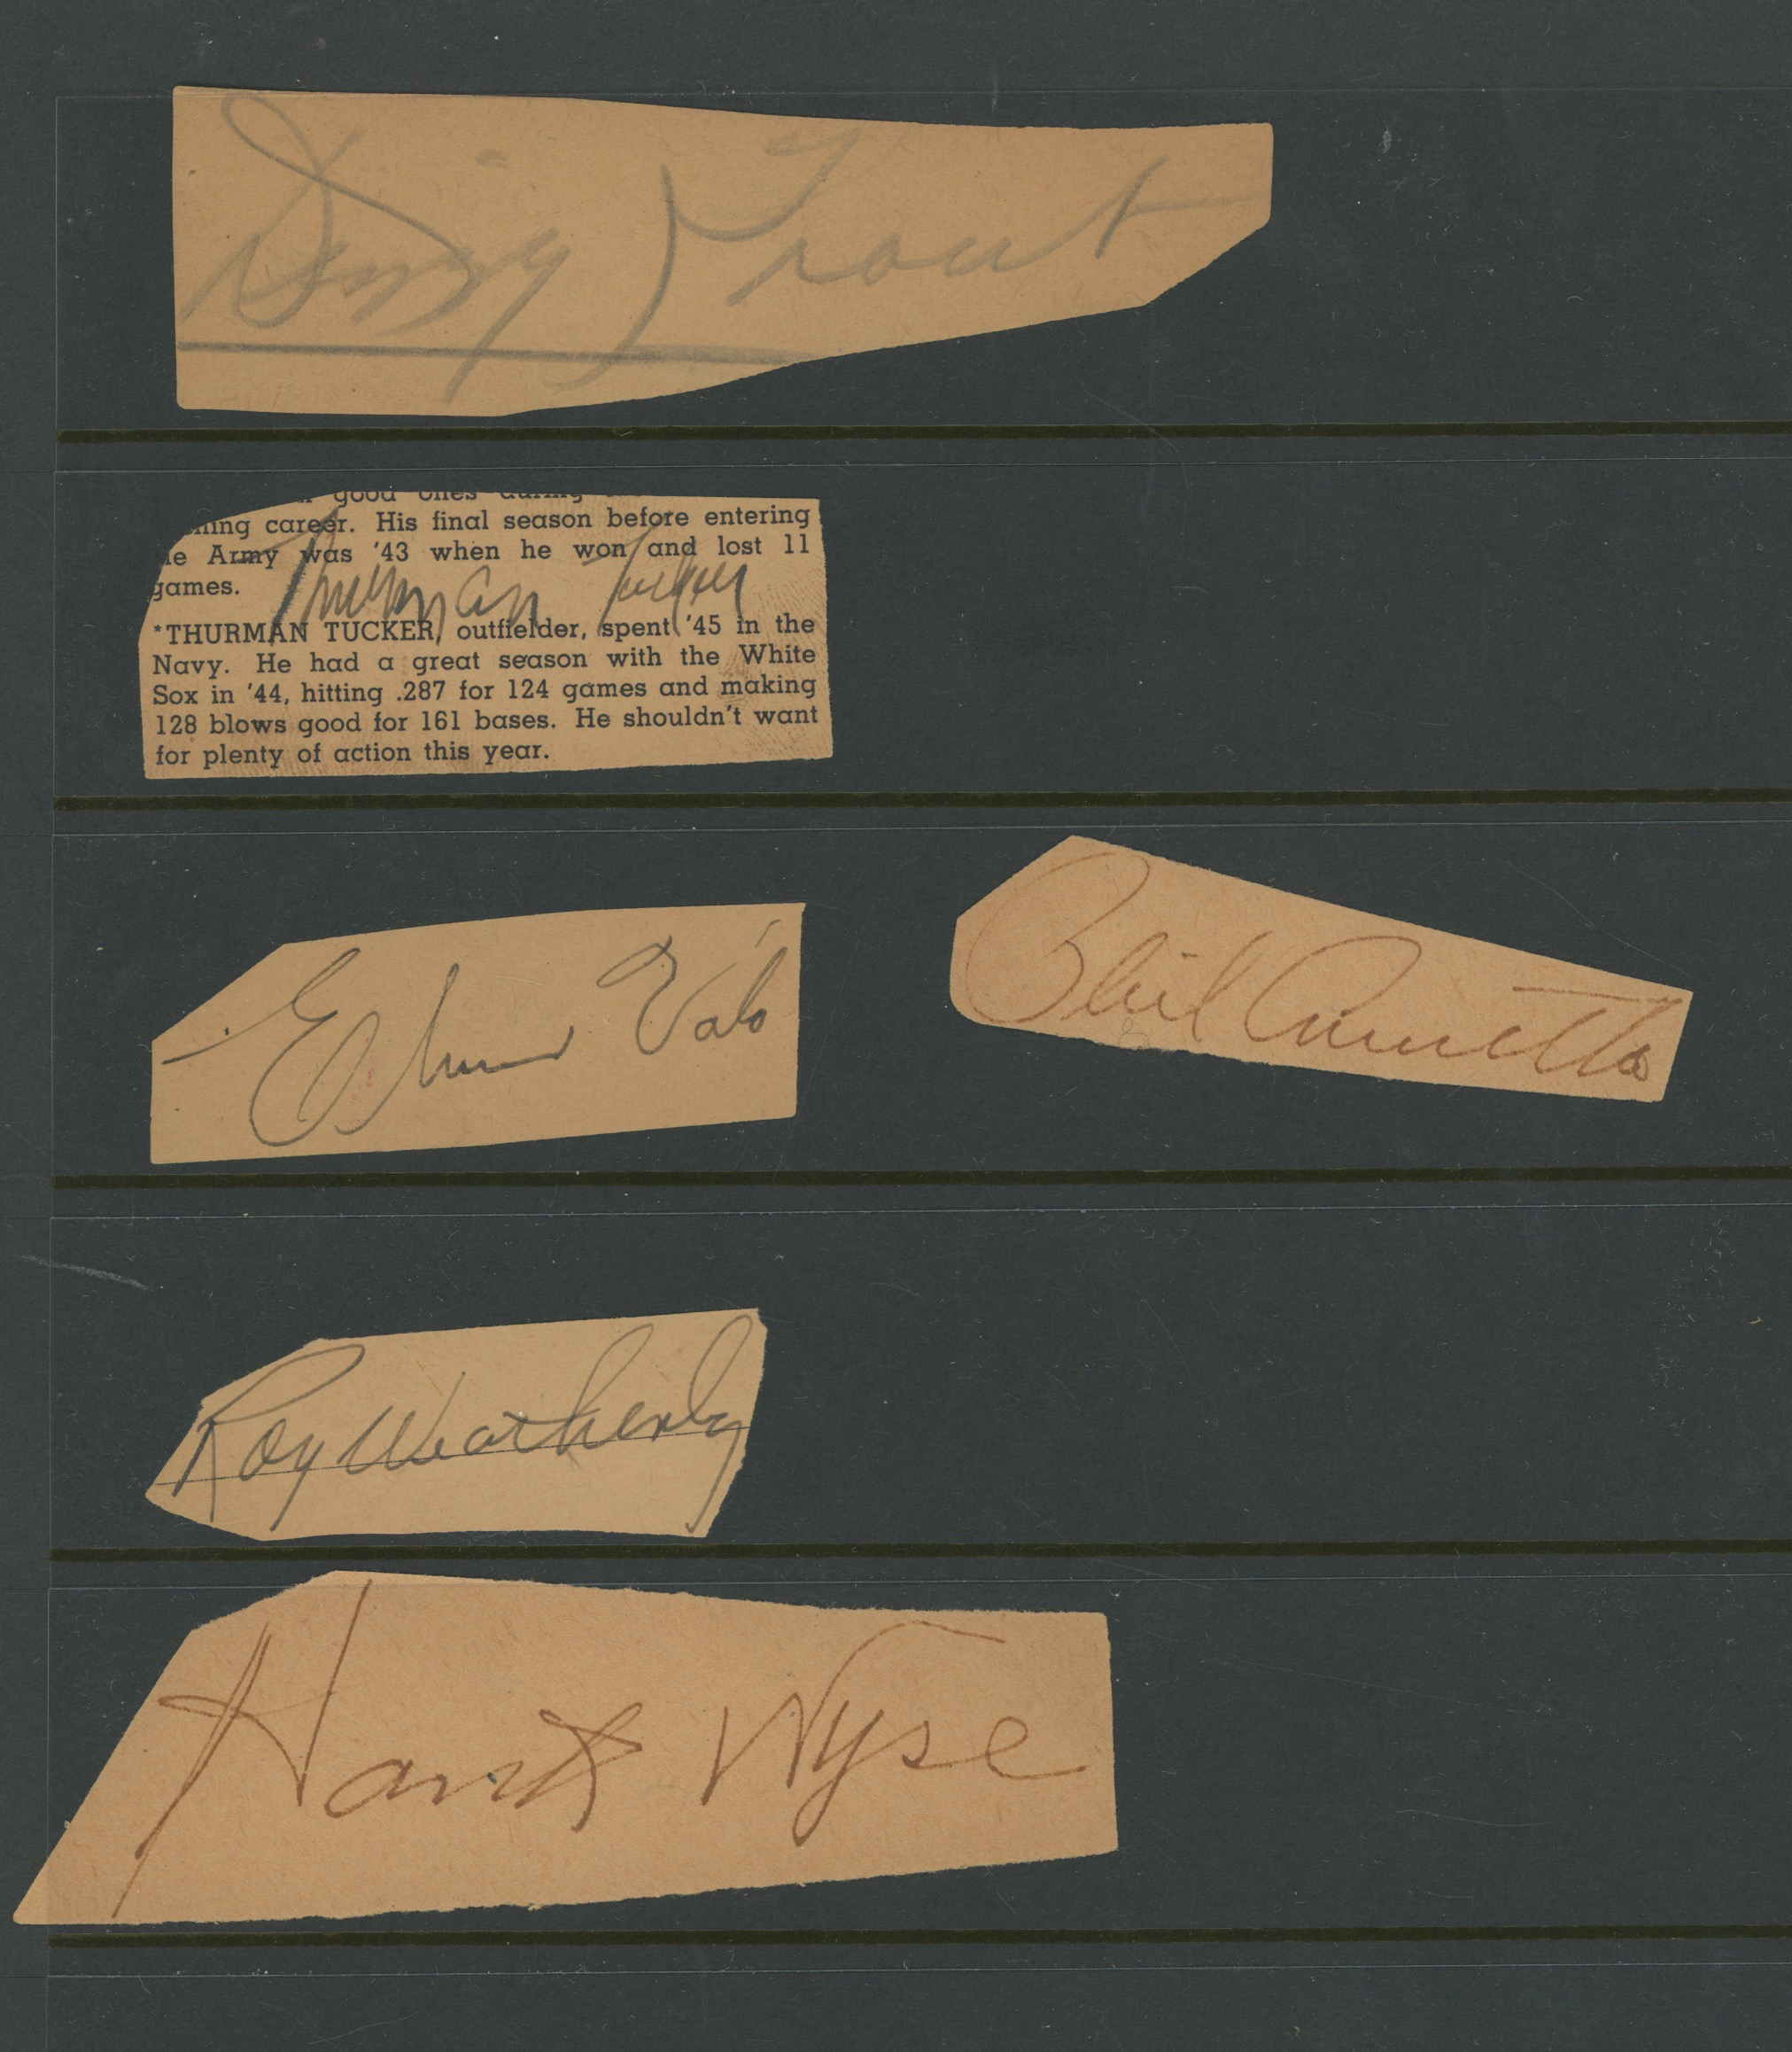 Dizzy Trout
good ones during
career. His final season before entering
Army was '43 when he won and lost 11
games.
Thurman Tucker
*THURMAN TUCKER, outfielder, spent '45 in the
Navy. He had a great season with the White
Sox in '44, hitting .287 for 124 games and making
128 blows good for 161 bases. He shouldn't want
for plenty of action this year.
Elmer Valo
Phil Cavarretta
Roy Weatherly
Hank Wyse